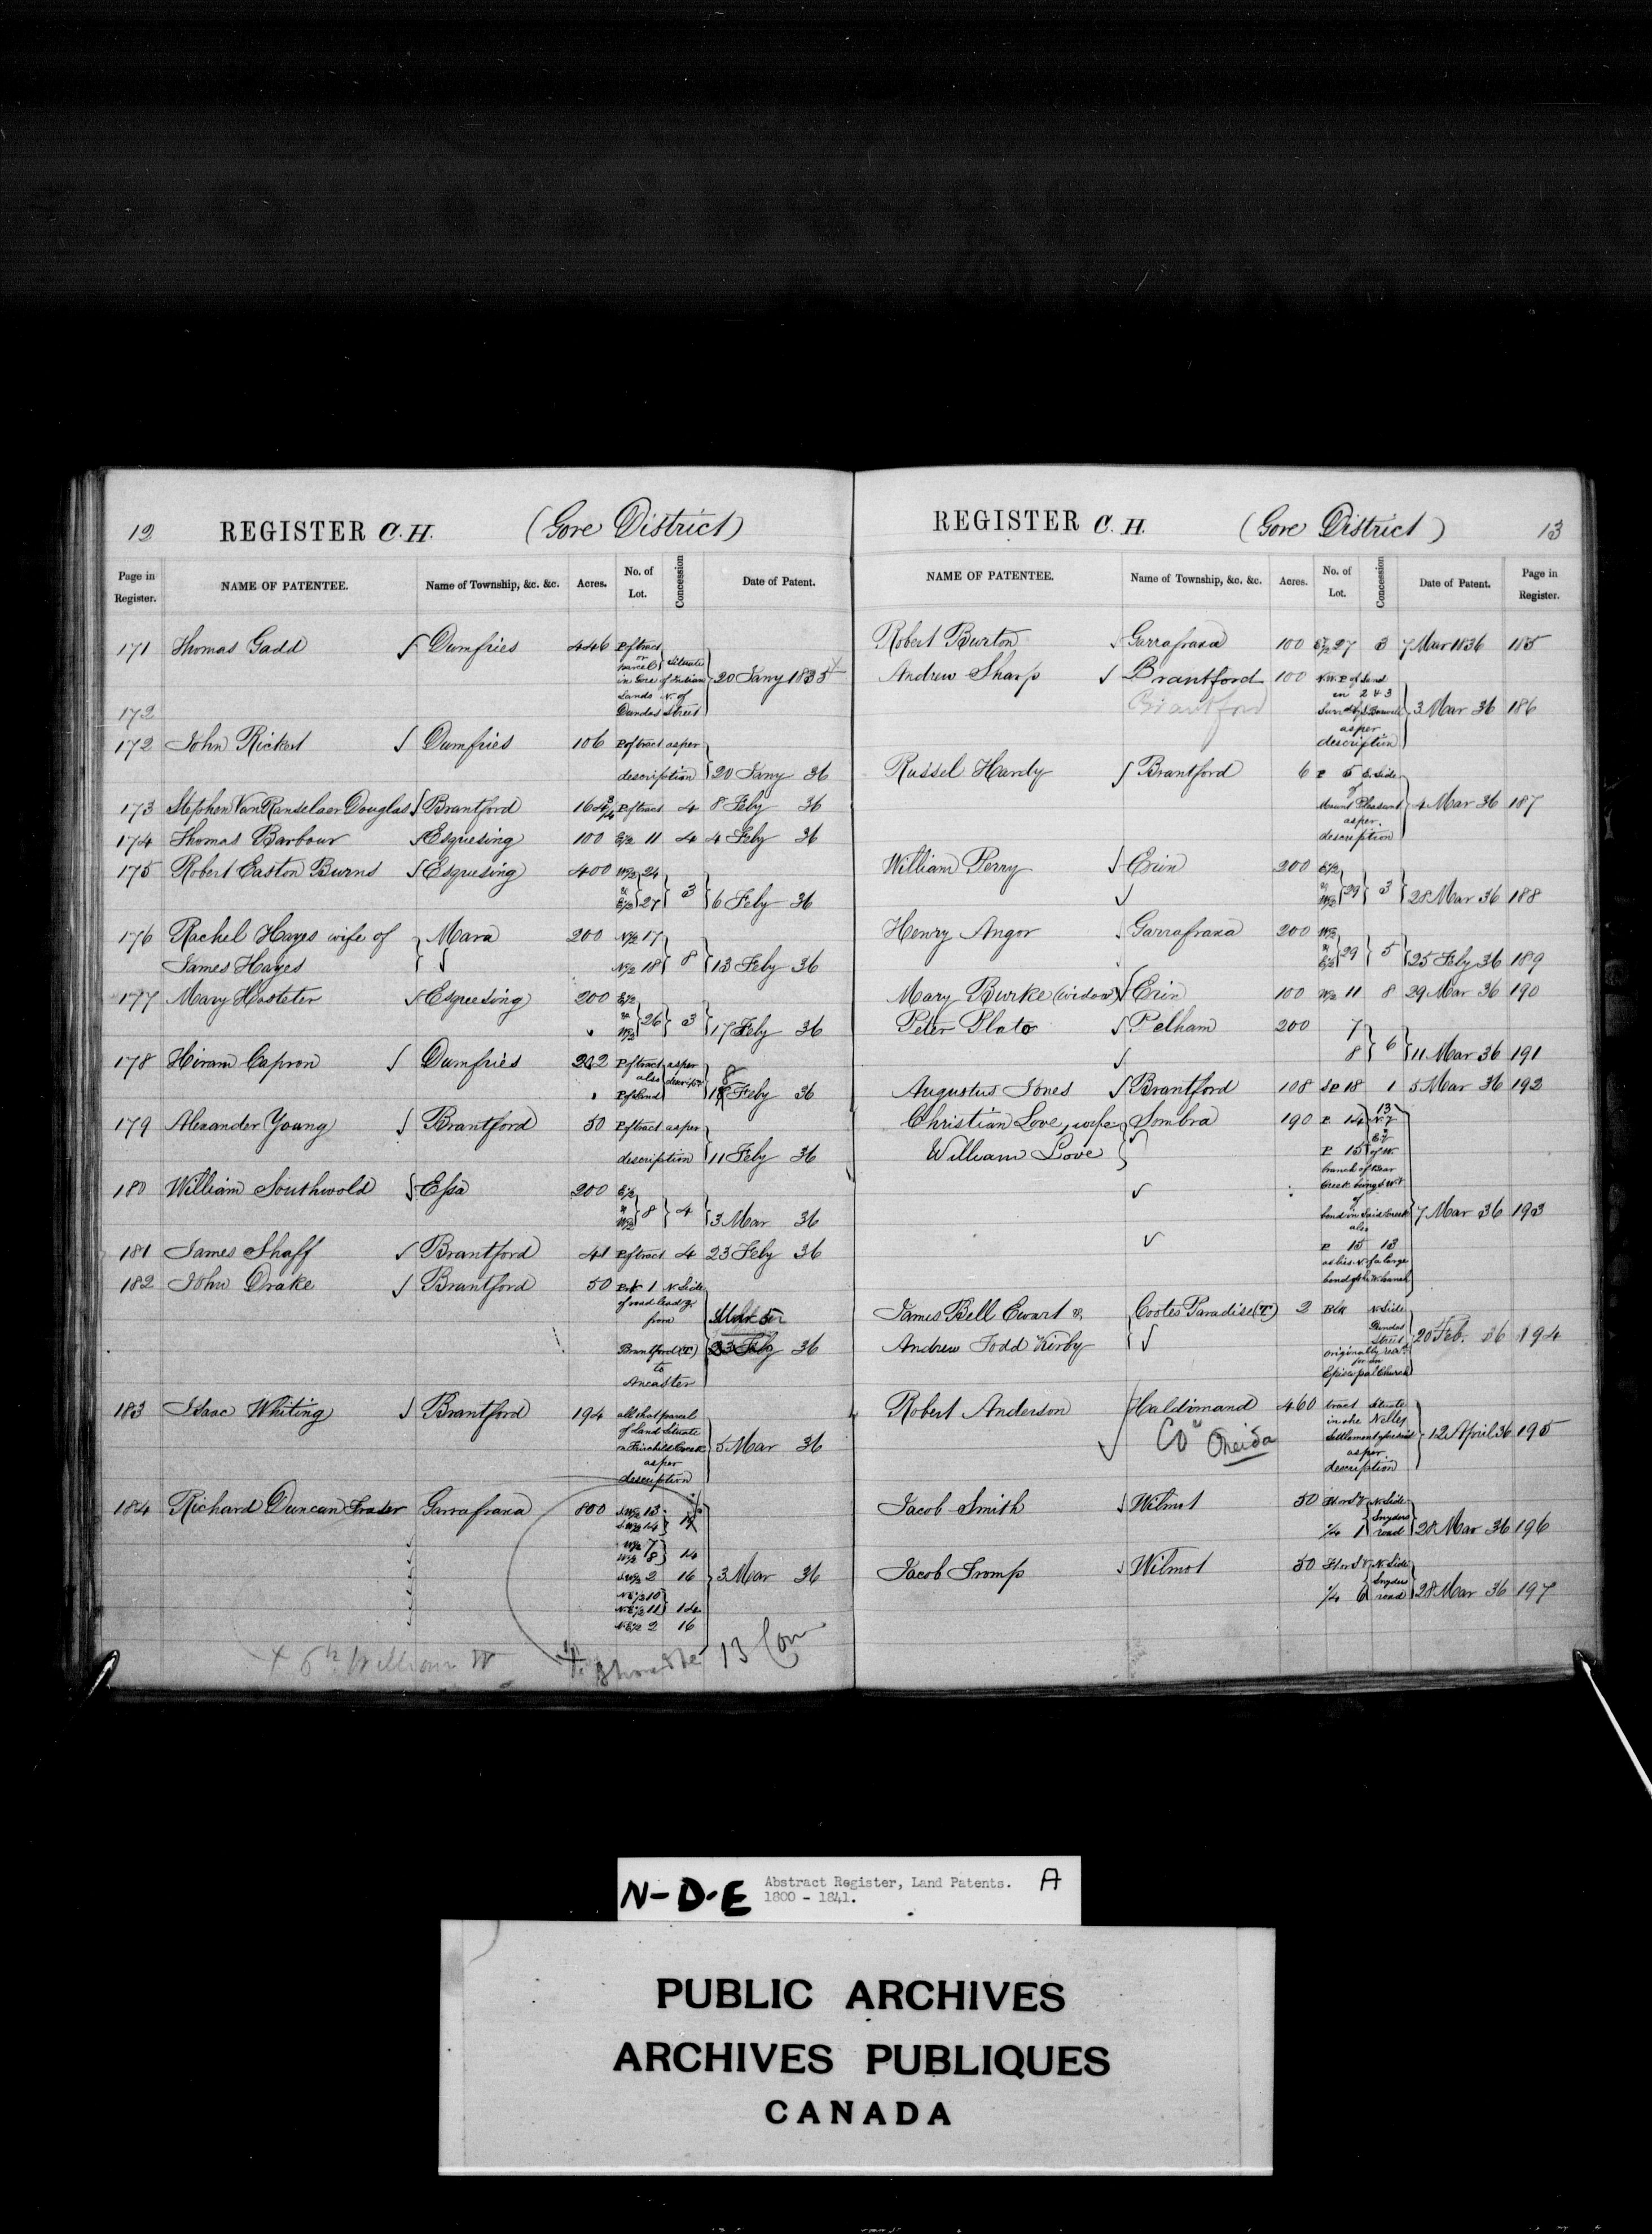 12 REGISTER C. H. (Gore District)
Page in Register. NAME OF PATENTEE. Name of Township, &c. &c. Acres. No. of Lot. Concession Date of Patent.
171 Thomas Gadd Dumfries 446 P of tract
or parcel Situate
in Gore of Indian 20 Jany 1835
Lands N. of
172 Dundas Street
172 John Rickert Dumfries 106 P of tract as per
description 20 Jany 36
173 Stephen Van Ranselaer Douglas Brantford 164 3/4 P of tract 4 8 Feby 36
174 Thomas Barbour Esquesing 100 E1/2 11 4 4 Feby 36
175 Robert Easton Burns Esquesing 400 W1/2 24
& E1/2 27 3 6 Feby 36
176 Rachel Hayes wife of Mara 200 N1/2 17
James Hayes N1/2 18 8 13 Feby 36
177 Mary Hosteter Esquesing 200 E1/2
& W1/2 26 3 17 Feby 36
178 Hiram Capron Dumfries 202 P of tract as per
also
P of Land Feby 36
179 Alexander Young Brantford 50 P of tract as per
description 11 Feby 36
180 William Southwold Essa 200 E1/2
& W1/2 8 4 3 Mar 36
181 James Shaff Brantford 41 P of tract 4 23 Feby 36
182 John Drake Brantford 50 1 N. Side
of road leadg
from
Brantford (T) 23 Feby 36
to
Ancaster
183 Isaac Whiting Brantford 194 all that parcel
of Land Situate
on Fairchilds Creek 5 Mar 36
as per
description
184 Richard Duncan Fraser Garrafraxa 800 S.W1/2 13
S.W1/2 14
W1/2 7
W1/2 8 14
S.W1/2 2 16 3 Mar 36
N.E1/2 10
N.E1/2 11 14
N.E1/2 2 16
+ William W
+ 13 Con
REGISTER C. H. (Gore District) 13
NAME OF PATENTEE. Name of Township, &c. &c. Acres. No. of Lot. Concession Date of Patent. Page in Register.
Robert Burton Garrafraxa 100 E1/2 27 3 7 Mar 1836 185
Andrew Sharp Brantford 100 N.W. P of Land
Brantford in 2 & 3
3 Mar 36 186
as per
description
Russel Hardy Brantford 6 P 5 E. Side
of
Mount Pleasant 4 Mar 36 187
as per
description
William Perry Erin 200 E1/2
& W1/2 29 3 28 Mar 36 188
Henry Angor Garrafraxa 200 W1/2
& E1/2 29 5 25 Feby 36 189
Mary Burke (widow) Erin 100 W1/2 11 8 29 Mar 36 190
Peter Plato Pelham 200 7
8 6 11 Mar 36 191
Augustus Jones Brantford 108 S P 18 1 5 Mar 36 192
Christian Love, wife Sombra 190 P. 14 13
William Love P 15 of W.
branch of Bear
Creek being
of
bend in Said Creek 7 Mar 36 193
also
P 15 13
as lies N. of a large
bend of the W. branch
James Bell Ewart & Cootes Paradise (T) 2 Blk N. Side
Dundas
Andrew Todd Kirby Street 20 Feb. 36 194
originally
for an
Episcopal Church
Robert Anderson Haldimand 460 tract Situate
in the Nelles
Co Oneida Settlement 12 April 36 195
as per
description
Jacob Smith Wilmot 50 N. Side
Snyders
1/4 1 road 28 Mar 36 196
Jacob Tromp Wilmot 50 N. Side
Snyders
1/4 6 road 28 Mar 36 197
N-D-E Abstract Register, Land Patents. A
1800 - 1841.
PUBLIC ARCHIVES
ARCHIVES PUBLIQUES
CANADA